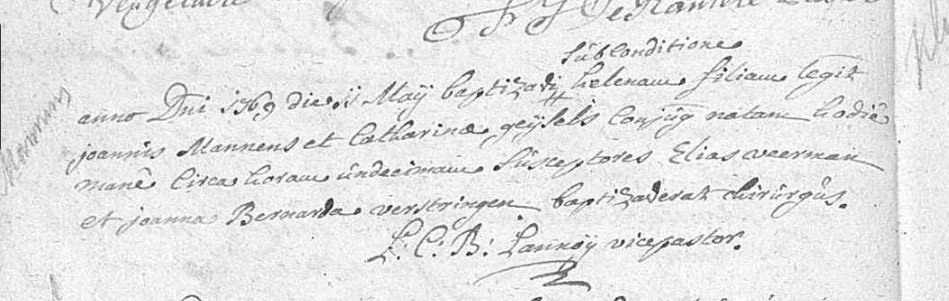 sûb conditione
anno Dni 1769 die 11 Maÿ baptizavi helenam filiam legit
joannis Mannens et Catharinæ geÿsels conjug natam hodiê
manê circa horam ûndecimam sûsceptores Elias veerman
et joanna Bernarda verstringen baptizaverat chirûrgûs.
L: C: B: Lannoÿ vicepastor.